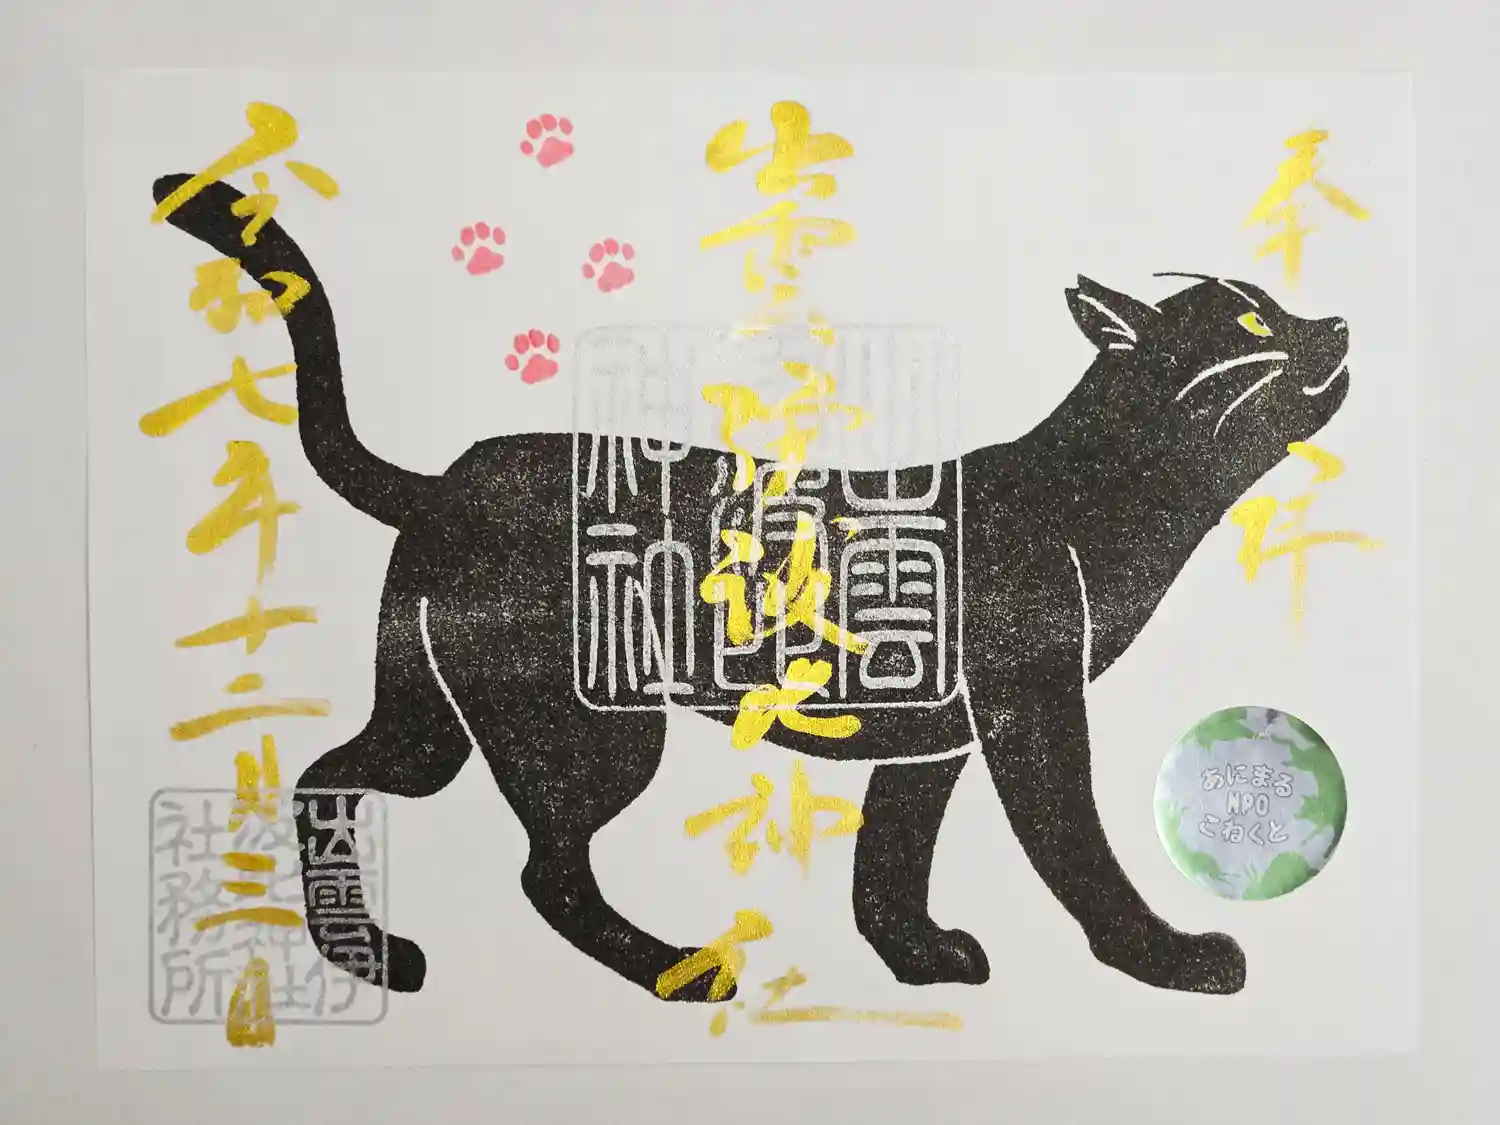 奉拝
出雲伊波比神社
出雲
伊波比
神社
令和七年十二月三日
出雲伊
波比神社
社務所
あにまる
NPO
こねくと